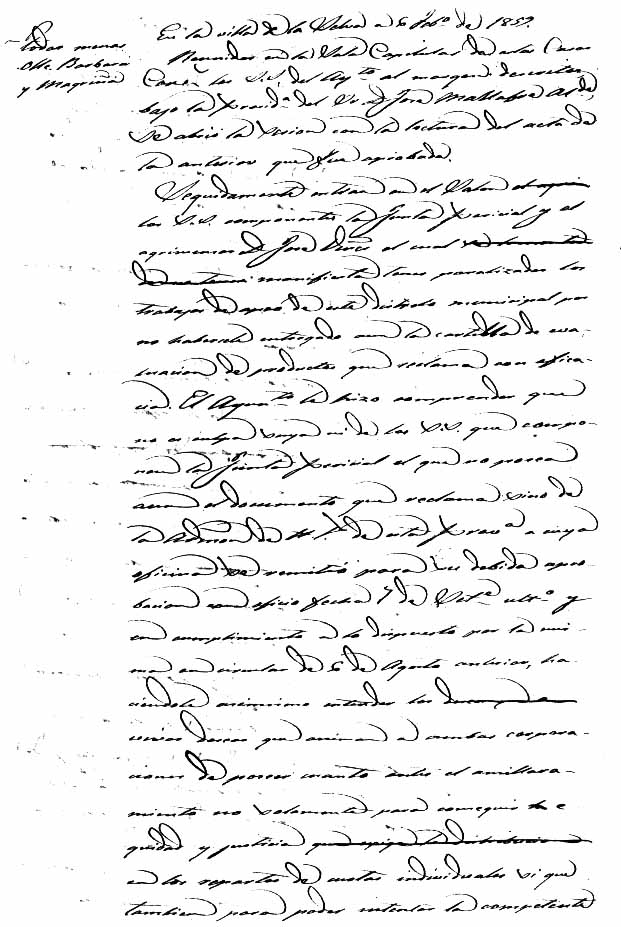 Todos menos
Olle. Barbará
y Magriñá
En la villa de la Selva a 6 Feb.º de 1859.
Reunidos en la Sala Capitular de estas Casas
Cons.s los S.S. del Ay.to al margen descritos
bajo la Presid.a del Sr. D. José Mallafré Alde,
se abrió la sesion con la lectura del acta de
la anterior que fue aprobada.
Seguidamente entran en el Salon
los S.S. componentes la Junta Pericial y el
agrimensor D. José el cual
manifiesta tener paralizados los
trabajos de apeo de este distrito municipal por
no habersele entregado aun la cartilla de eva-
luacion de productos que reclama con efica-
cia. El Ayun.to le hizo comprender que
no es culpa suya ni de los S.S. que compo-
nen la Junta Pericial el que no posea
aun el documento que reclama sino de
la Admon de H. P. de esta Prov.a a cuya
oficina se remitió para su debida apro-
bacion con oficio fecha 7 de Set.e ult.º y
en cumplimiento a lo dispuesto por la mis-
ma en circular de 6 de Agosto anterior, ha-
ciendole asimismo entender los
vivos deseos que animan a ambas corpora-
ciones de poseer cuanto antes el amillara-
miento no solamente para conseguir e
quidad y justicia
en los repartos de cuotas individuales si que
tambien para poder intentar la competente